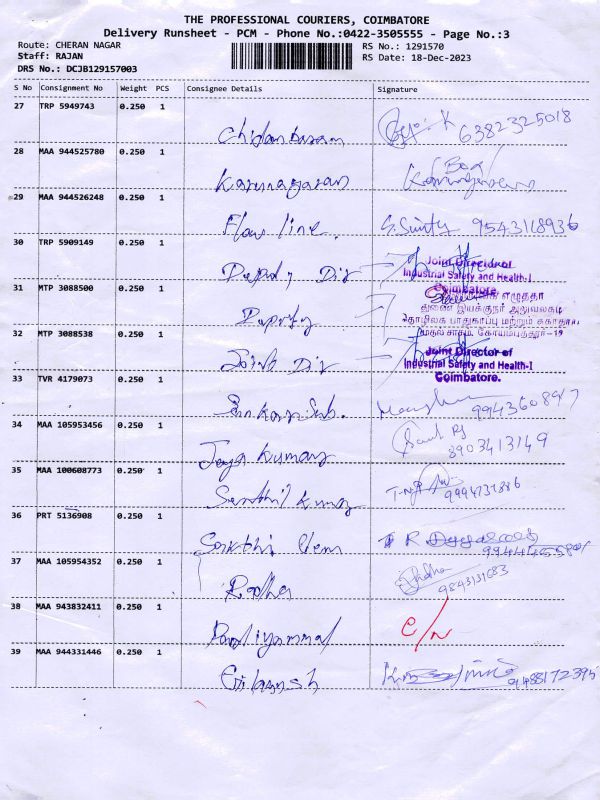 THE PROFESSIONAL COURIERS, COIMBATORE
Delivery Runsheet - PCM - Phone No.:0422-3505555 - Page No.:3
Route: CHERAN NAGAR RS No.: 1291570
Staff: RAJAN RS Date: 18-Dec-2023
DRS No.: DCJB129157003
S No Consignment No Weight PCS Consignee Details Signature
27 TRP 5949743 0.250 1
Chidambaram K 6382325018
28 MAA 944525780 0.250 1
Karunagaran
29 MAA 944526248 0.250 1
Flow line. 9543118936
30 TRP 5909149 0.250 1
Deputy Dir
Joint Director of
Industrial Safety and Health-I
Coimbatore.
31 MTP 3088500 0.250 1
Deputy
துணை இயக்குநர் அலுவலகம்
தொழிலக பாதுகாப்பு மற்றும் சுகாதார
32 MTP 3088538 0.250 1
Joint Dir
Joint Director of
Industrial Safety and Health-I
Coimbatore.
33 TVR 4179073 0.250 1
34 MAA 105953456 0.250 1
Jaya Kumar 8903413149
35 MAA 100608773 0.250 1
Senthil Kumar
36 PRT 5136908 0.250 1
37 MAA 105954352 0.250 1
Radha Radha
9843131083
38 MAA 943832411 0.250 1
39 MAA 944331446 0.250 1
9488172395